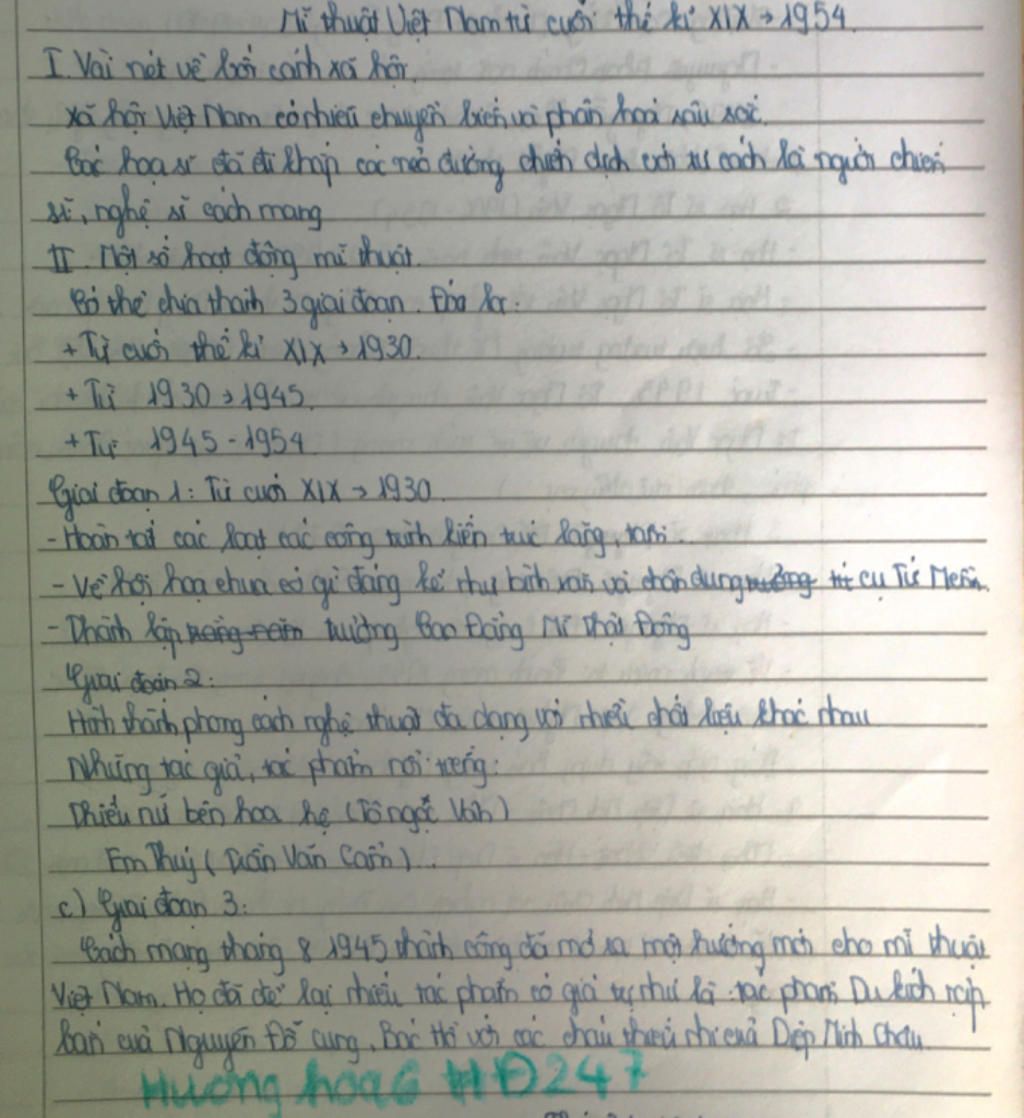 Mĩ thuật Việt Nam từ cuối thế kỉ XIX → 1954.
I. Vài nét về bối cảnh xã hội.
Xã hội Việt Nam có nhiều chuyển biến và phân hoá sâu sắc.
Các hoạ sĩ đã đi khắp các nẻo đường chiến dịch với tư cách là người chiến
sĩ, nghệ sĩ cách mạng
II. Một số hoạt động mĩ thuật.
Có thể chia thành 3 giai đoạn. Đó là:
+ Từ cuối thế kỉ XIX → 1930.
+ Từ 1930 → 1945.
+ Từ 1945 - 1954
Giai đoạn 1: Từ cuối XIX → 1930.
- Hoàn tất các loạt các công trình kiến trúc lăng,
- Về hội hoạ chưa có gì đáng kể như bình văn và chân dung cụ Tú Mền.
- Thành lập trường Cao Đẳng Mĩ Thuật Đông
Giai đoạn 2:
Hình thành phong cách nghệ thuật đa dạng với nhiều chất liệu khác nhau
Những tác giả, tác phẩm nổi tiếng:
Thiếu nữ bên hoa hẹ (Tô ngọc Vân)
Em Thuý (Trần Văn Cẩn)...
c) Giai đoạn 3:
Cách mạng tháng 8 1945 thành công đã mở ra một hướng mới cho mĩ thuật
Việt Nam. Họ đã để lại nhiều tác phẩm có giá trị như là: tác phẩm Du kích tập
bắn của Nguyễn Đỗ Cung, Bác Hồ với các cháu thiếu nhi của Diệp Minh Châu.
Hương hoa6 HĐ247